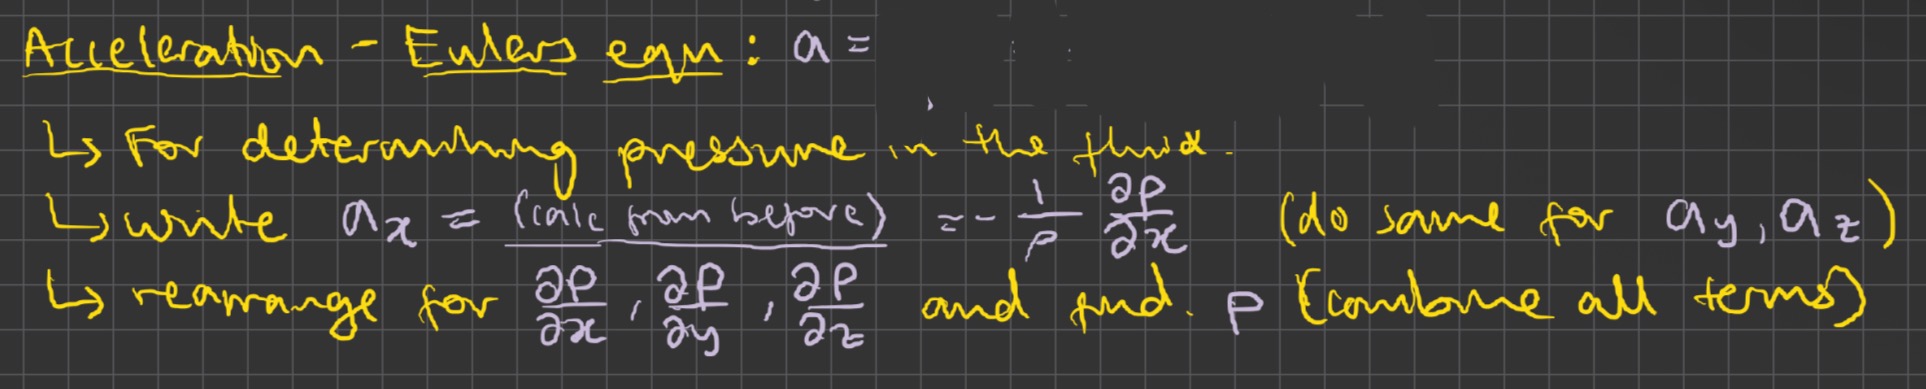 Acceleration - Eulers eqn: a =
↳ For determining pressure in the fluid.
↳ write aₓ = (calc from before) = - 1/ρ ∂p/∂x (do same for a_y, a_z)
↳ rearrange for ∂p/∂x, ∂p/∂y, ∂p/∂z and find. p (combine all terms)